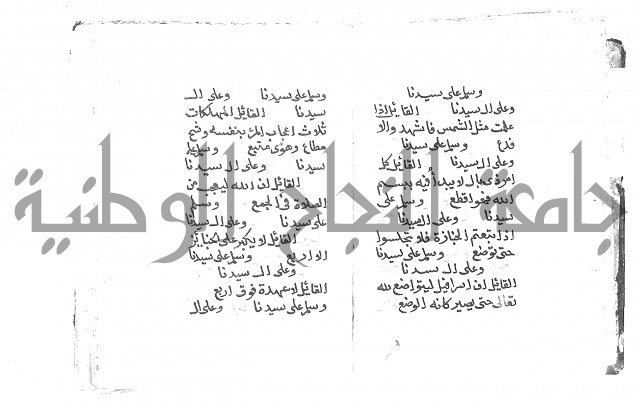 وسلم على سيدنا
وعلى ال سيدنا القائل اذا
علمت مثل الشمس فاشهد والا
فدع وسلم على سيدنا
وعلى ال سيدنا القائل كل
امر ذي بال لا يبدأ فيه ببسم
الله فهو اقطع وسلم على
سيدنا وعلى ال سيدنا
اذا تبعتم الجنازة فلا تجلسوا
حتى توضع وسلم على سيدنا
وعلى ال سيدنا
القائل ان اسرافيل ليتواضع لله
تعالى حتى يصير كانه الوضع
وسلم على سيدنا وعلى ال
سيدنا القائل المهلكات
ثلاث اعجاب المرء بنفسه وشح
مطاع وهوى متبع وسلم على
سيدنا وعلى ال سيدنا
القائل ان الله ليعجب من
الصلاة في الجمع وسلم
على سيدنا وعلى ال سيدنا
القائل لا يكبر على الجنايز
الا اربع وسلم على سيدنا
وعلى ال سيدنا
القائل لا عهدة فوق اربع
وسلم على سيدنا وعلى ال
جامعة النجاح الوطنية